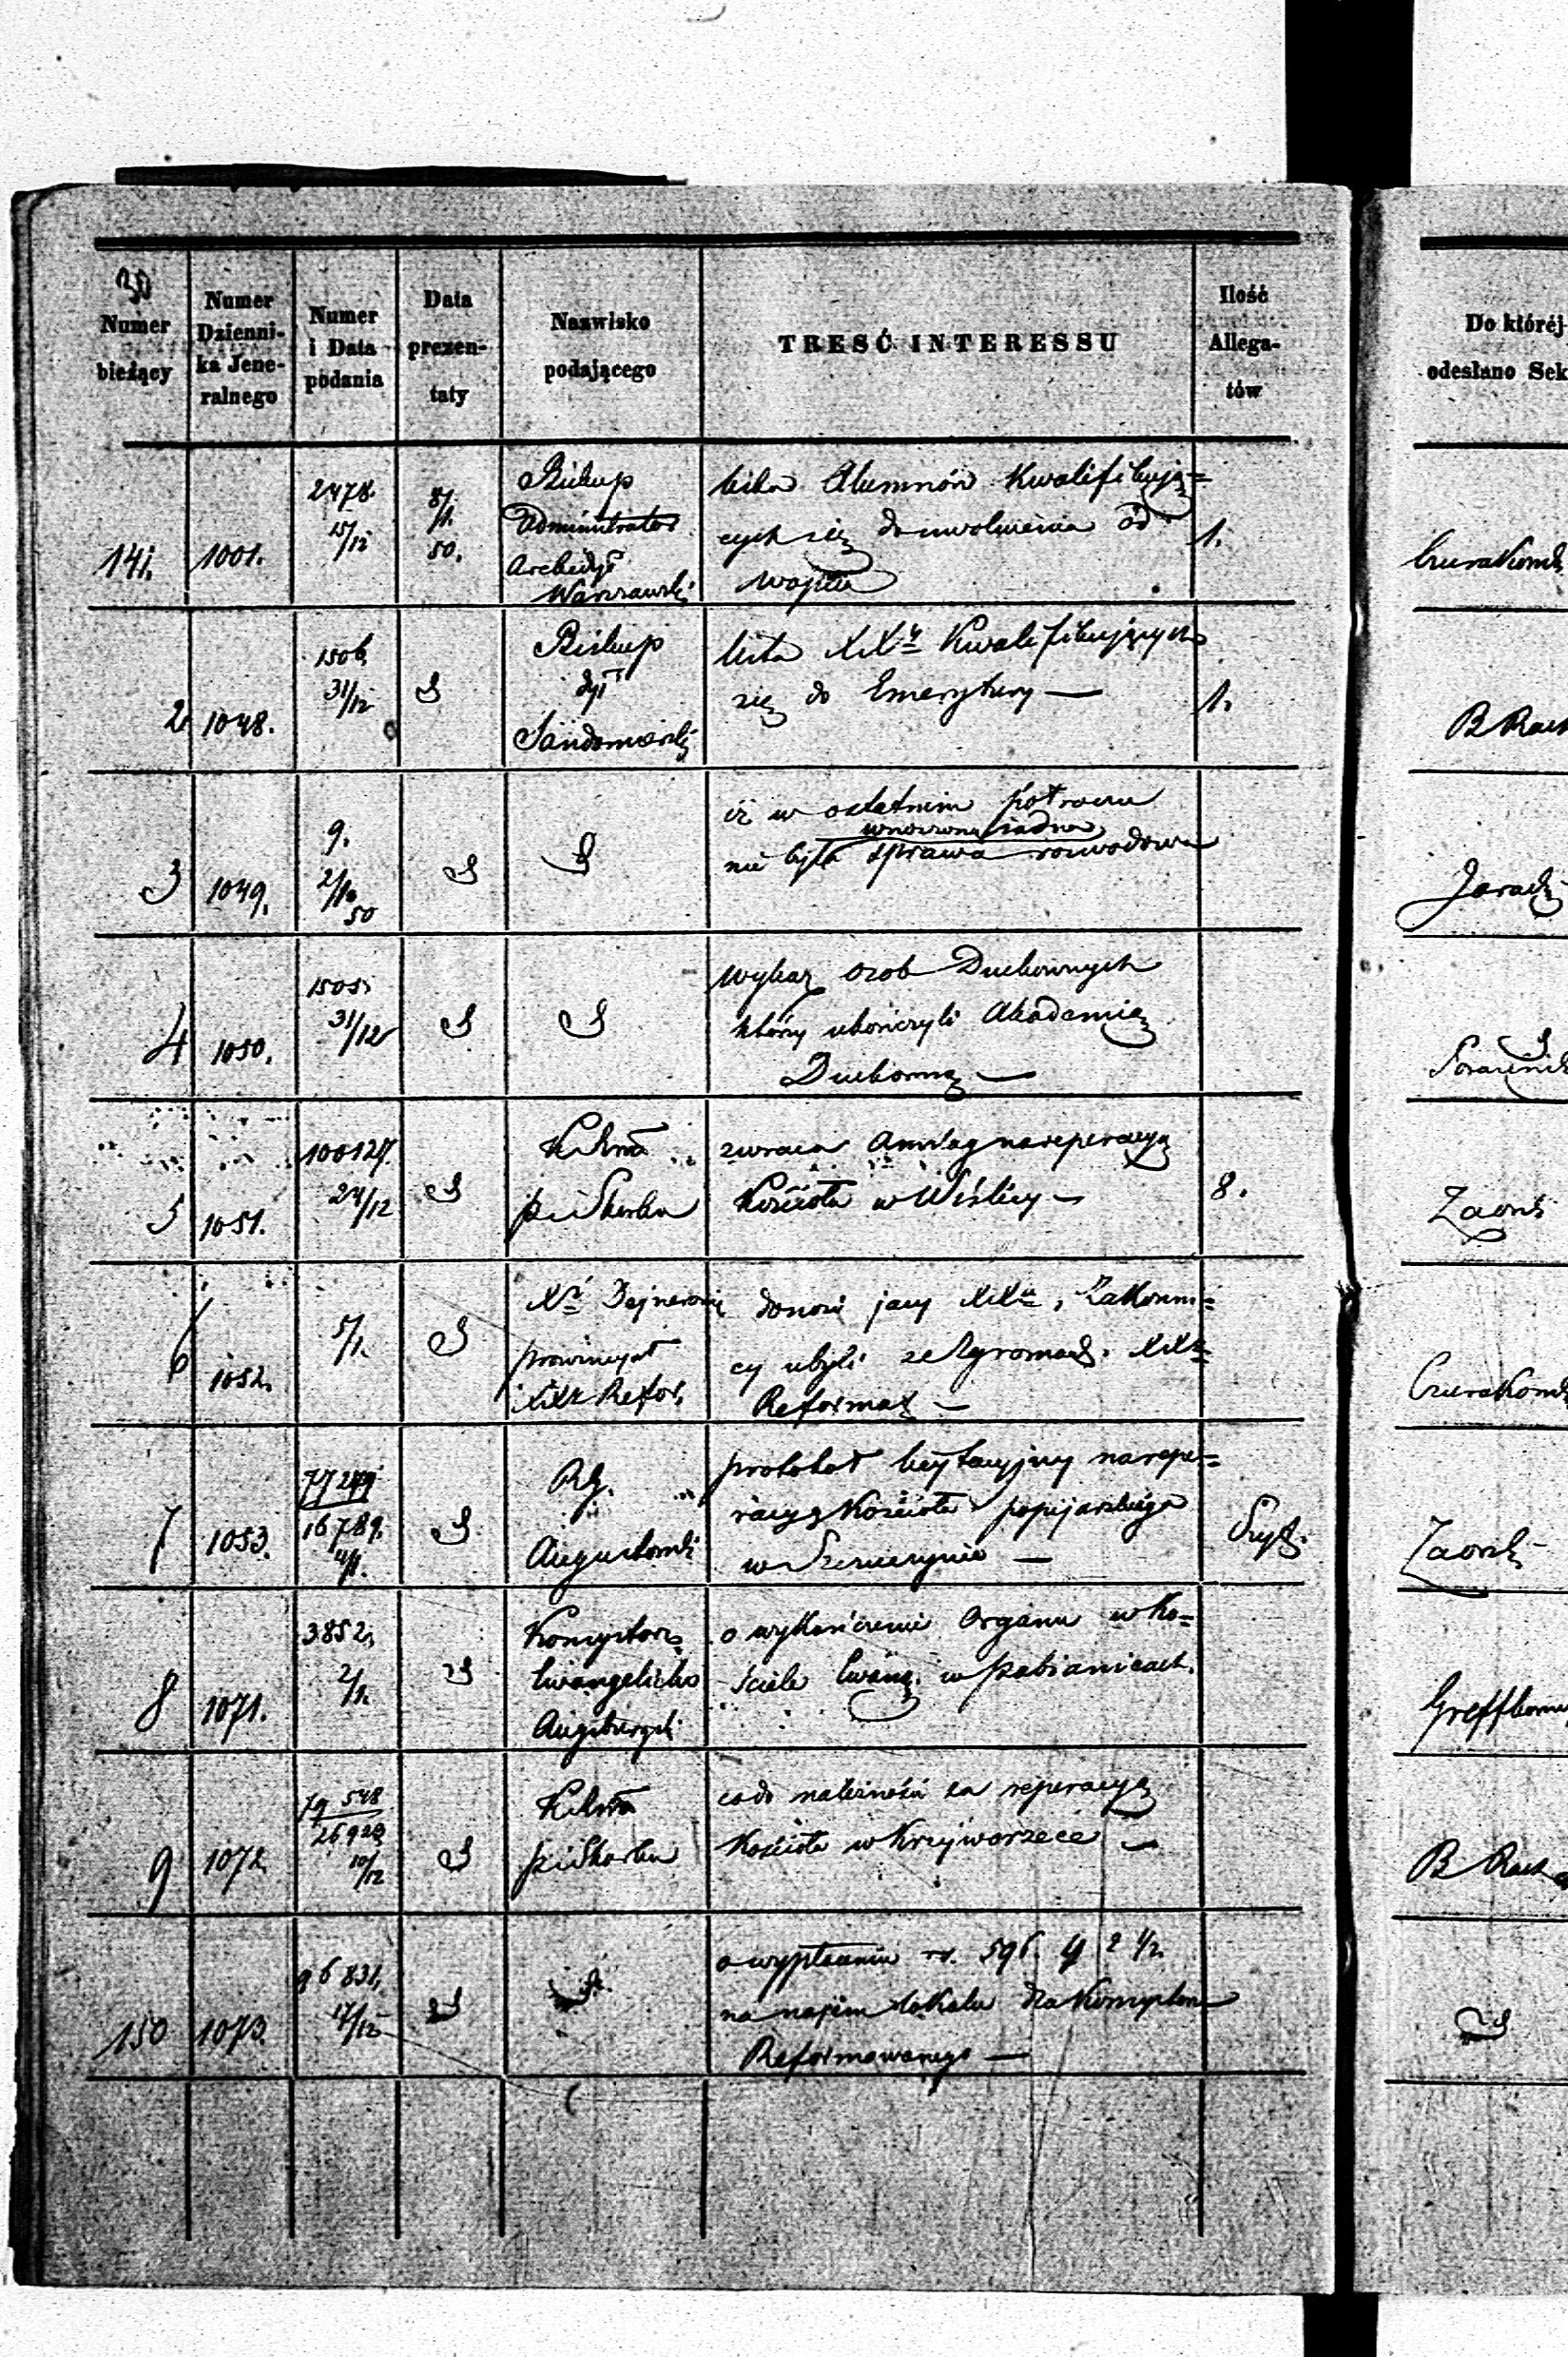 30
Numer
bieżący
Numer
Dzienni-
ka Jene-
ralnego
Numer
i Data
podania
Data
prezen-
taty
Nazwisko
podającego
TRESĆ INTERESSU
Ilość
Allega-
tów
Do któréj
odesłano Sek
141.
1001.
2478.
15/12
8/1.
50.
Biskup
Administrator
Archidye
Warszawski
lista Alumnów Kwalifikują=
cych się do uwolnienia od
wojska
1.
2
1048.
1506
31/12
Biskup
dyi
Sandomierski
lista XXży Kwalifikujących
się do Emerytury —
1.
B Rach
3
1049.
9.
2/1
50
iż w ostatnim półroczu
wnoszoną żadna
nie była sprawa rozwodowa
4
1050.
1505
31/12
wykaz osób Duchownych
którzy ukończyli Akademię
Duchowną —
5
1051.
100127.
24/12
pi Skarbu
zwraca Anszlag na reperacyą
Kościoła w Wiślicy —
8.
Zaorski
6
1052.
5/1.
Prowincyał
XXży Refor.
donosi jacy XXża, Zakonni=
cy ubyli ze Zgromadz. XXży
Reformat —
7
1053.
77249
16789.
4/1.
RG.
Augustowski
protokół licytacyjny na repe=
racyą Kościoła popijarskiego
w Szczuczynie —
Zaorski
8
1071.
3852
2/1.
Konsystorz
Ewangelicko
Augsburgski
o wykończenie Organu w Ko=
ściele Ewang. w Pabianicach.
9
1072
79 548
26929
10/12
pi Skarbu
co do należności za reperacyą
Kościoła w Krzyworzece —
B Rach
150
1073.
96831.
17/12
o wypłacenie rs. 596. 2 1/2
na najem lokalu dla Konsystorza
Reformowanego —